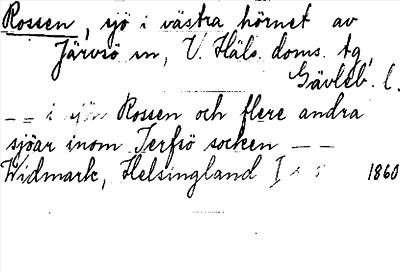 Rossen, sjö i västra hörnet av
Järvsö sn, V. Häls. doms. tg,
Gävleb. l.
– – i sjön Rossen och flere andra
sjöar inom Jerfsö socken – –
Widmark, Helsingland I 1860